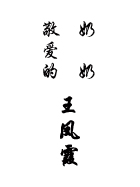 奶奶
敬爱的
王凤霞